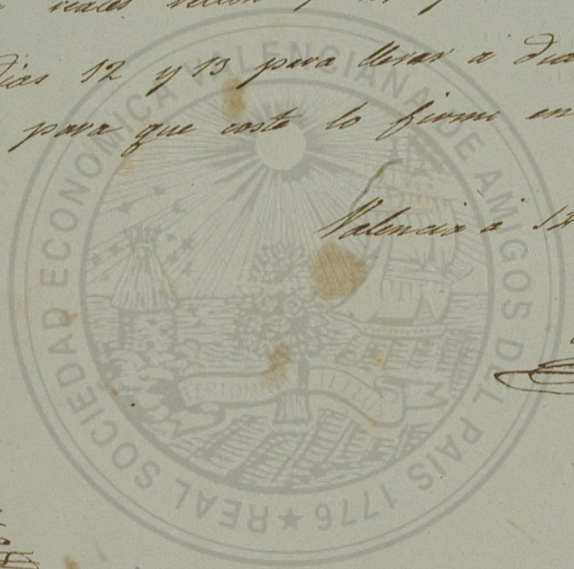 reales vellon
dias 12 y 13 para llevar á
para que coste lo firmi en
Valencia á 12
REAL SOCIEDAD ECONOMICA VALENCIANA DE AMIGOS DEL PAIS 1776